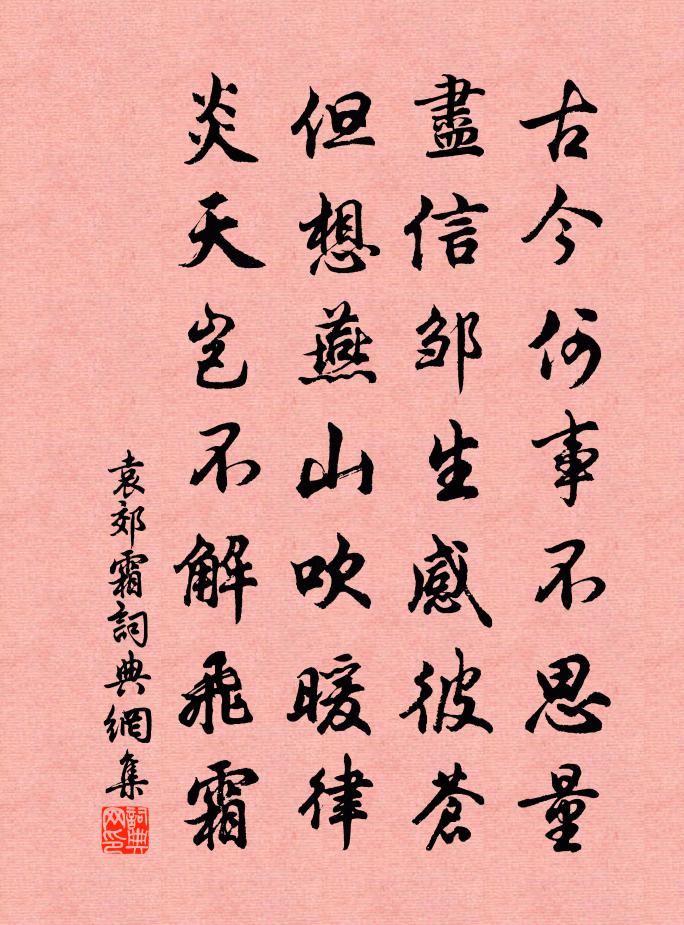 古今何事不思量
盡信邹生感彼蒼
但想燕山吹暖律
炎天岂不解飛霜
袁郊霜詞典網集
詞典网印